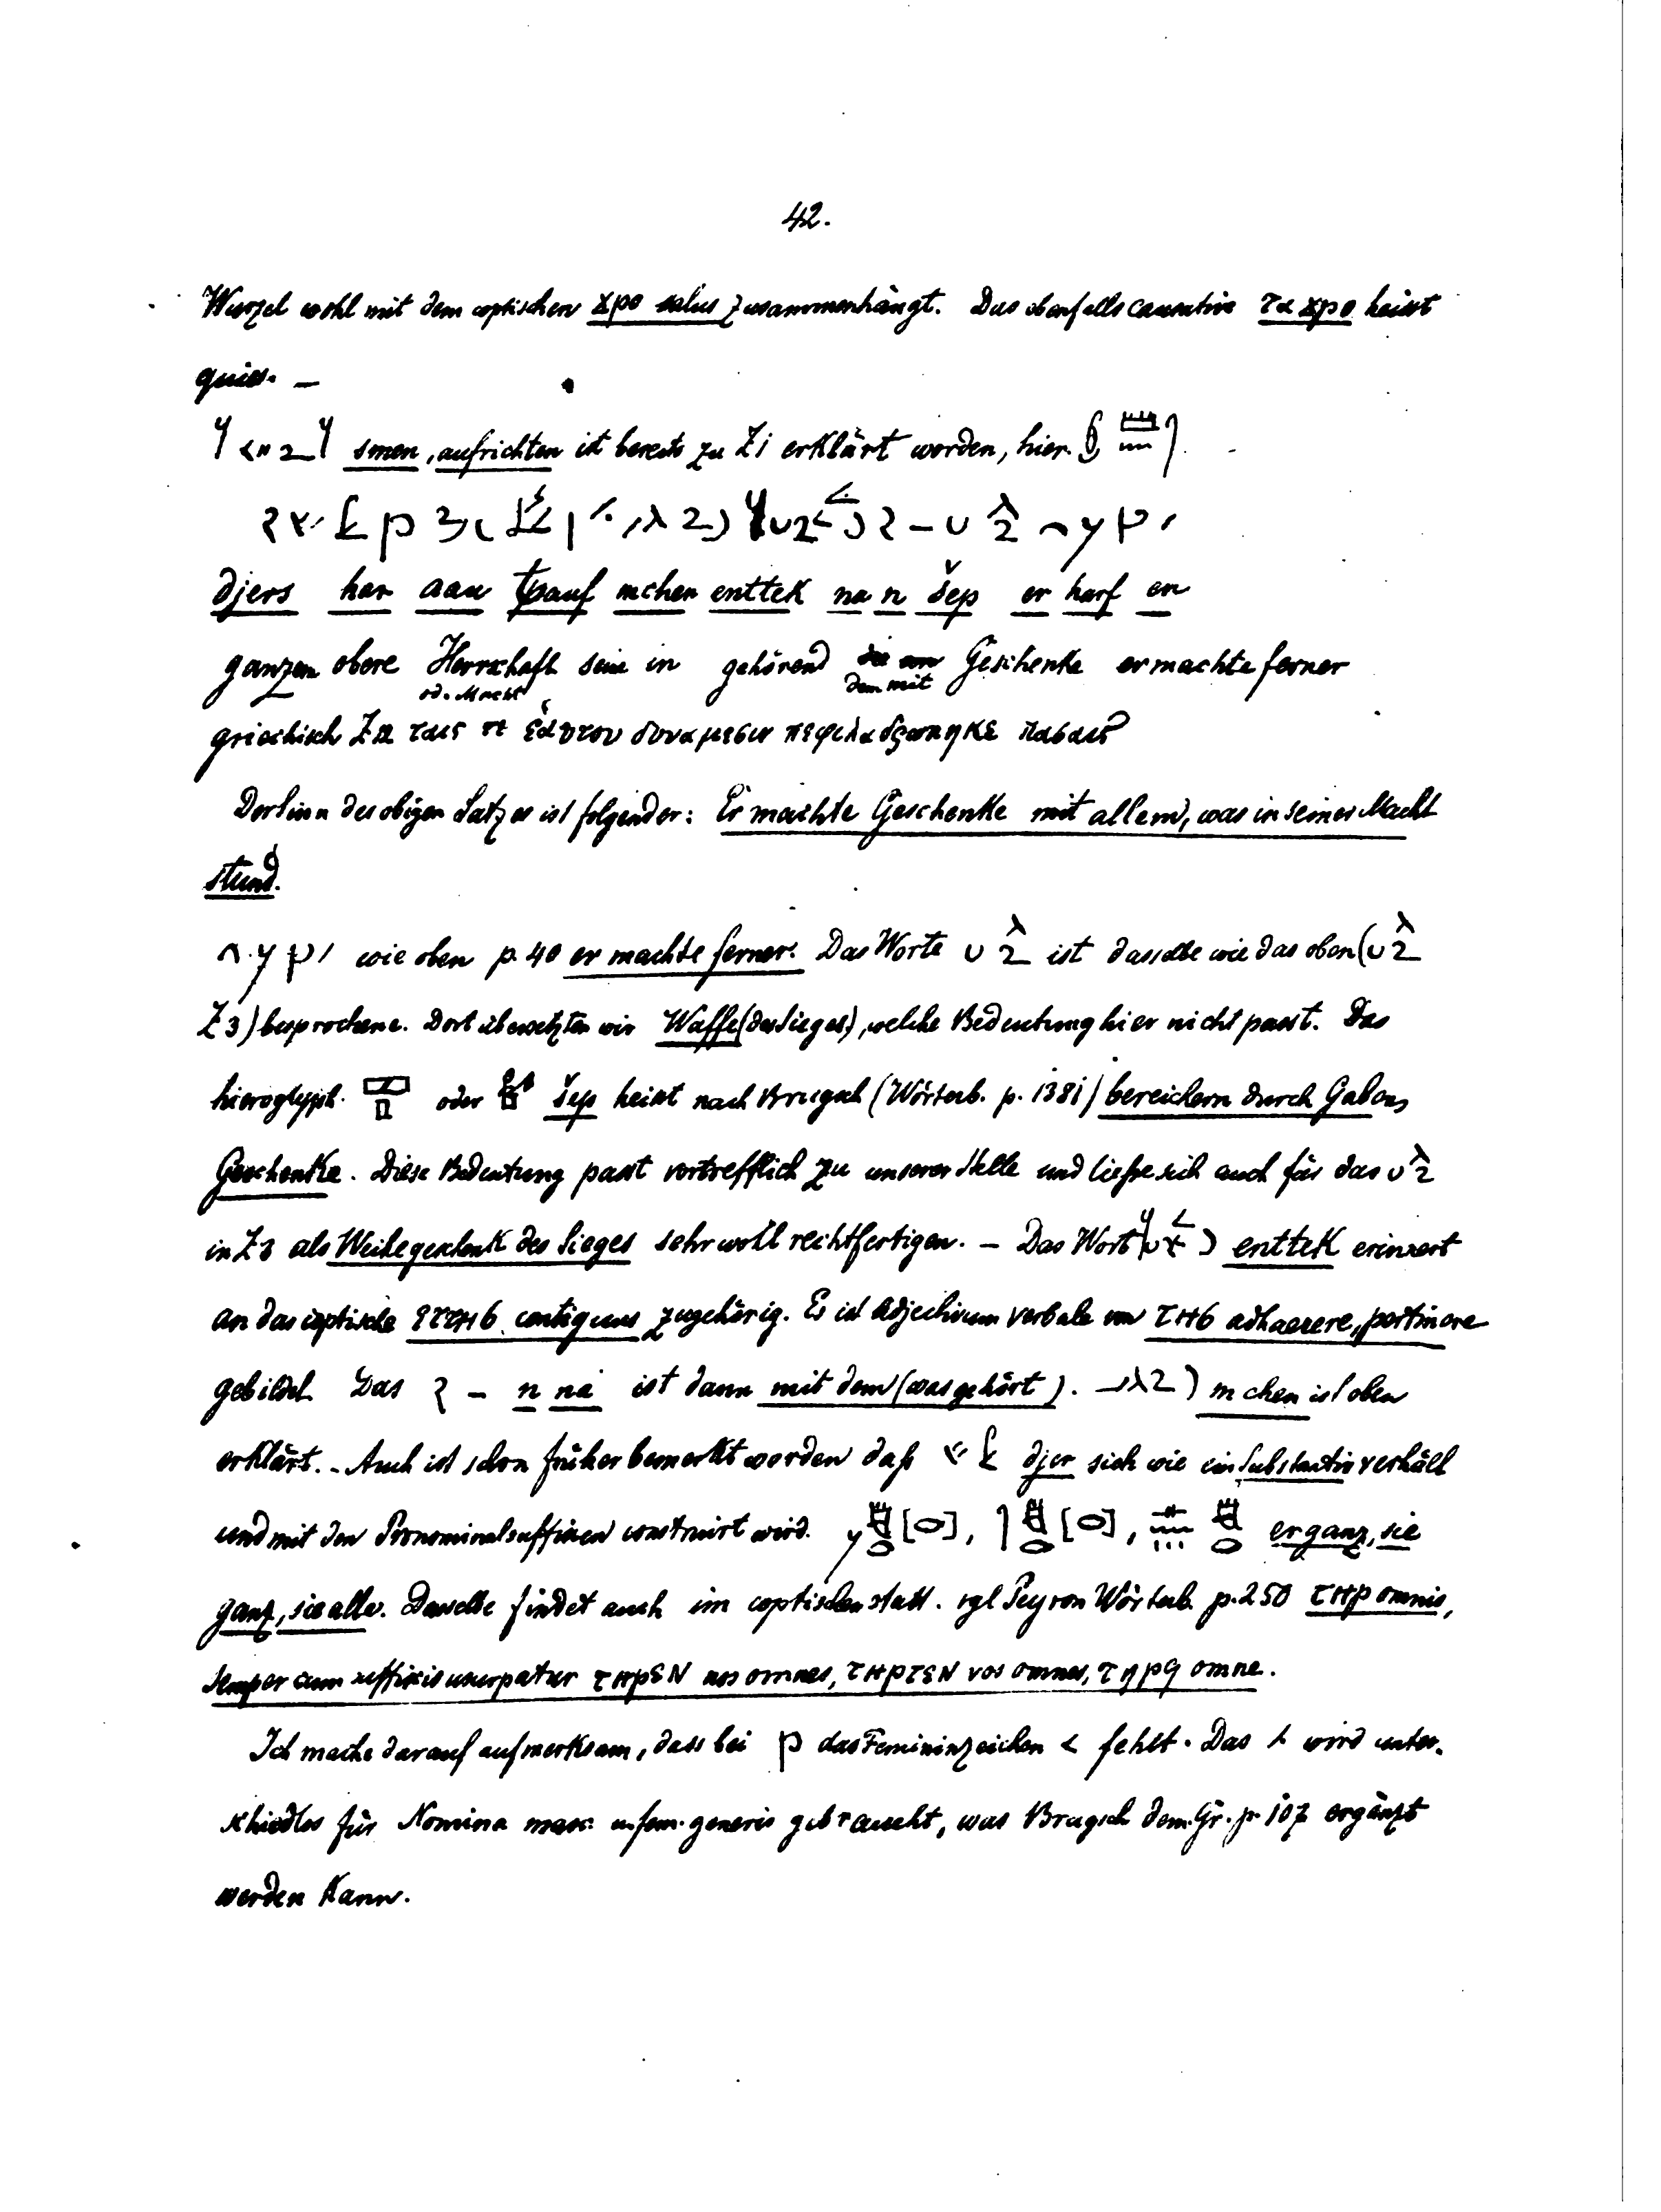 42.
Wurzel wohl mit dem coptischen ϫρο salus zusammenhängt. Das ebenfalls causative ταϫρο heisst
quies. —
smen, aufrichten ist bereits zu Z1 erklärt worden, hier.
djers har aau tpauf mchen enttek na n šep er harf en
ganzen obere Herrschaft seine in gehörend die an Geschenke er machte ferner
od. Macht dem mit
griechisch ταις τε ἑαυτου δυναμεσιν πεφιλανθρωπηκε πασαις
Der Sinn des obigen Satzes ist folgender: Er machte Geschenke mit allem, was in seiner Macht
stund.
wie oben p. 40 er machte ferner. Das Worte ist dasselbe wie das oben (
Z 3) besprochene. Dort übersetzten wir Waffe (des Sieges), welche Bedeutung hier nicht passt. Das
hieroglyph. oder šep heisst nach Brugsch (Wörterb. p. 1381) bereichern durch Gaben,
Geschenke. Diese Bedeutung passt vortrefflich zu unserer Stelle und ließe sich auch für das
in Z3 als Weihegeschenk des Sieges sehr wohl rechtfertigen. — Das Wort enttek erinnert
an das coptische contiguus zugehörig. Es ist Adjectivum verbale von ⲧⲏϭ adhaerere, pertinere
gebildet. Das n na ist dann mit dem (was gehört). m chen ist oben
erklärt. — Auch ist schon früher bemerkt worden daß djer sich wie ein Substantiv verhält
und mit den Pronominalsuffixen construirt wird. [ ], [ ], er ganz, sie
ganz, sie alle. Dasselbe findet auch im coptischen statt. vgl Peyron Wörterb. p. 250 ⲧⲏⲣ omnis,
semper cum suffixis usurpatur ⲧⲏⲣⲉⲛ nos omnes, ⲧⲏⲣⲧⲉⲛ vos omnes, ⲧⲏⲣϥ omne.
Ich mache darauf aufmerksam, dass bei das Femininzeichen fehlt. Das wird unter-
schiedlos für Nomina masc. u. fem. generis gebraucht, was Brugsch dem. Gr. p. 107 ergänzt
werden kann.